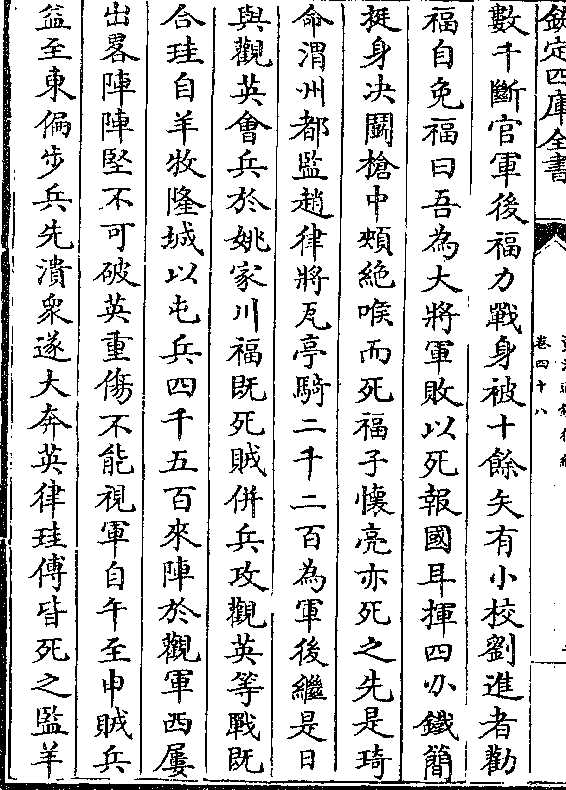 欽定四庫全書
卷四十八
數千斷官軍後福力戰身被十餘矢有小校劉進者勸
福自免福曰吾為大將軍敗以死報國耳揮四刃鐵簡
挺身決鬪槍中頰絶喉而死福子懷亮亦死之先是琦
命渭州都監趙律將瓦亭騎二千二百為軍後繼是日
與觀英會兵於姚家川福既死賊併兵攻觀英等戰既
合珪自羊牧隆城以屯兵四千五百來陣於觀軍西屢
出畧陣陣堅不可破英重傷不能視軍自午至申賊兵
益至東偏步兵先潰衆遂大奔英律珪傅皆死之監羊